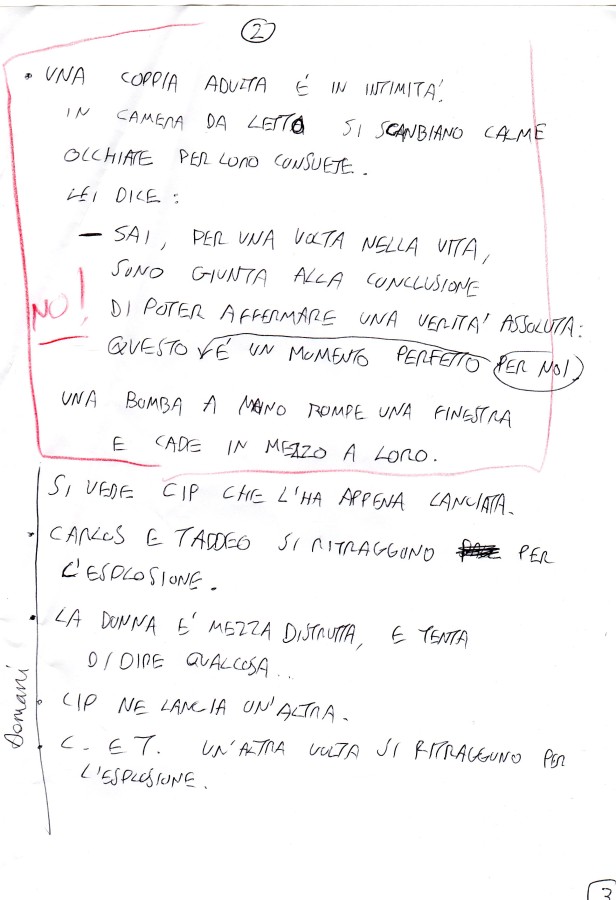 2
• UNA COPPIA ADULTA É IN INTIMITA'.
IN CAMERA DA LETTO SI SCANBIANO CALME
OCCHIATE PER LORO CONSUETE.
LEI DICE:
— SAI, PER UNA VOLTA NELLA VITA,
SONO GIUNTA ALLA CONCLUSIONE
NO!
DI POTER AFFERMARE UNA VERITA' ASSOLUTA:
QUESTO É UN MOMENTO PERFETTO PER NOI
UNA BOMBA A MANO ROMPE UNA FINESTRA
E CADE IN MEZZO A LORO.
SI VEDE CIP CHE L'HA APPENA LANCIATA.
• CARLOS E TADDEO SI RITRAGGONO PER
L'ESPLOSIONE.
• LA DONNA E' MEZZA DISTRUTTA, E TENTA
DI DIRE QUALCOSA..
Domani
• CIP NE LANCIA UN'ALTRA.
• C. E T. UN'ALTRA VOLTA SI RITRAGGONO PER
L'ESPLOSIONE.
3